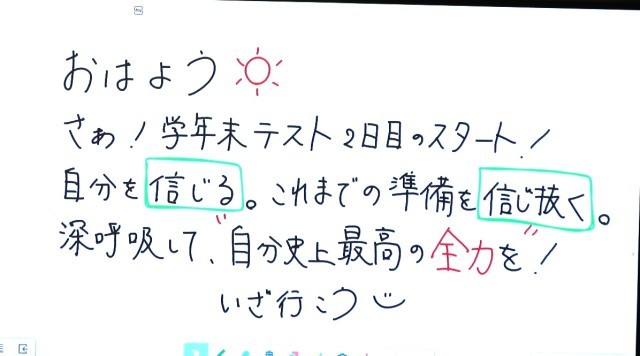 おはよう
さぁ！学年末テスト2日目のスタート！
自分を信じる。これまでの準備を信じ抜く。
深呼吸して、自分史上最高の全力を！
いざ行こう